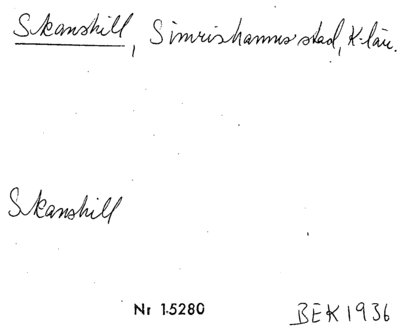 Skanshill, Simrishamns stad, K-län.
Skanshill
Nr 15280
BEK 1936